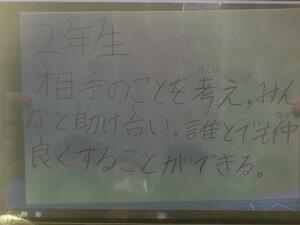 2年生
相手のことを考え,みん
なと助け合い,誰とでも仲
良くすることができる。